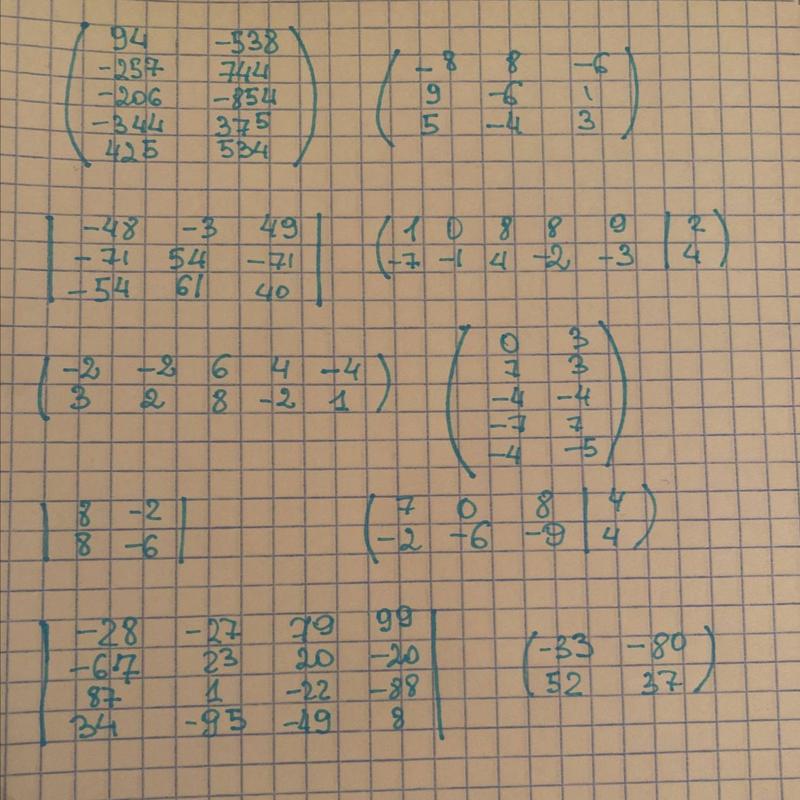 ( 94 -538 )
( -257 744 )
( -206 -854 )
( -344 375 )
( 425 534 )
( -8 8 -6 )
( 9 -6 1 )
( 5 -4 3 )
| -48 -3 49 |
| -71 54 -71 |
| -54 61 40 |
( 1 0 8 8 9 | 2 )
( -7 -1 4 -2 -3 | 4 )
( -2 -2 6 4 -4 )
( 3 2 8 -2 1 )
( 0 3 )
( 7 3 )
( -4 -4 )
( -7 7 )
( -4 -5 )
| 8 -2 |
| 8 -6 |
( 7 0 8 | 4 )
( -2 -6 -9 | 4 )
| -28 -27 79 99 |
| -67 23 20 -20 |
| 87 1 -22 -88 |
| 34 -95 -49 8 |
( -33 -80 )
( 52 37 )